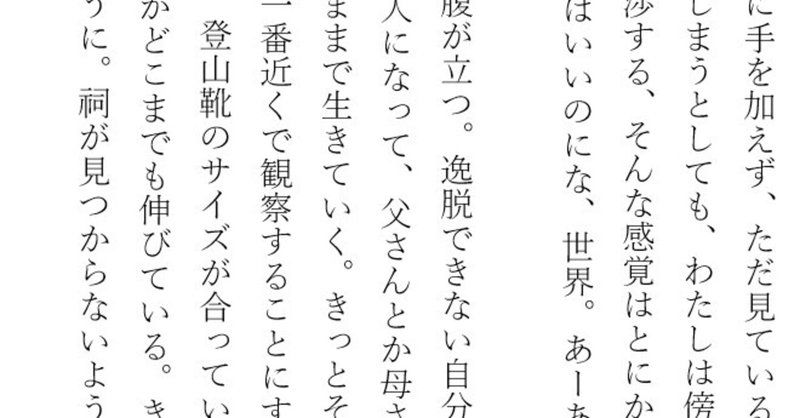 に手を加えず、ただ見ている
しまうとしても、わたしは傍
渉する、そんな感覚はとにか
はいいのにな、世界。あーあ
腹が立つ。逸脱できない自分
人になって、父さんとか母さ
ままで生きていく。きっとそ
一番近くで観察することにす
登山靴のサイズが合ってい
かどこまでも伸びている。き
うに。祠が見つからないよう